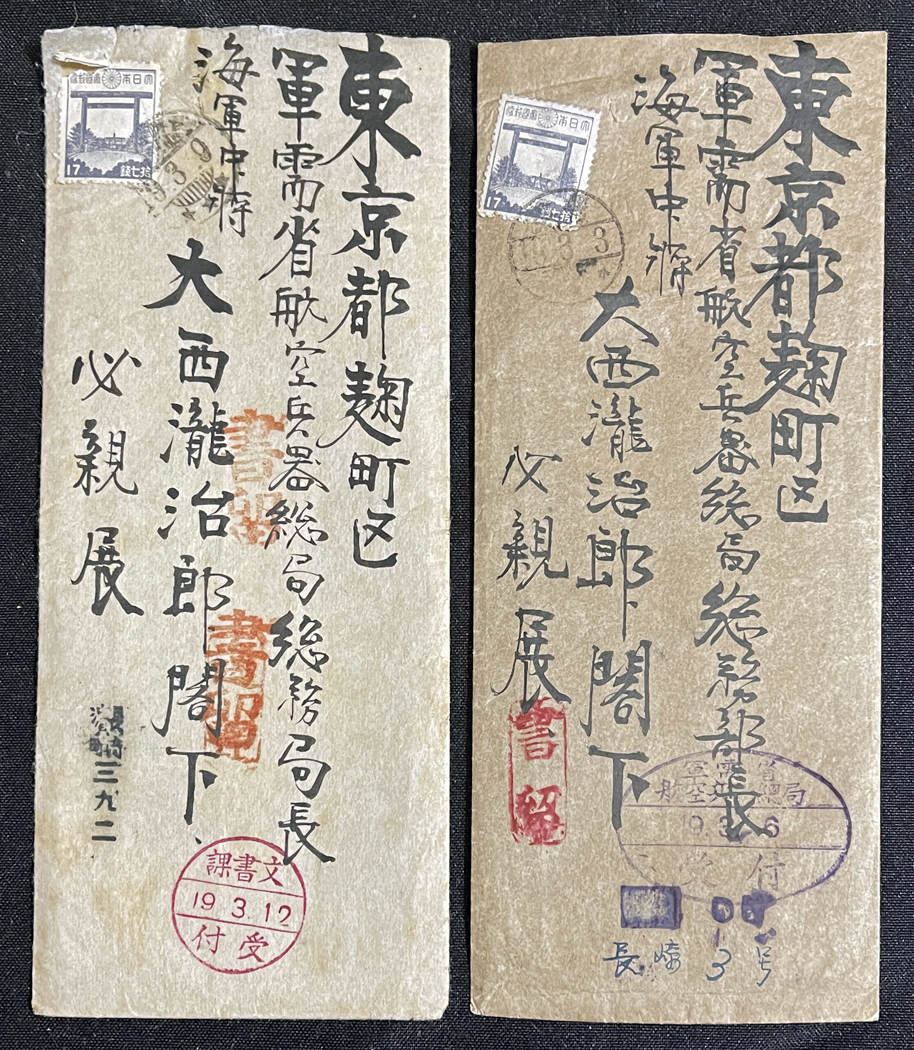 東京都麹町区
軍需省航空兵器総局総務局長
海軍中将
大西瀧治郎閣下
必親展
大日本帝国郵便
17
拾七銭
19.3.9
書留
書留
三九二
文書課
19.3.12
受付
東京都麹町区
軍需省航空兵器総局総務部長
海軍中将
大西瀧治郎閣下
必親展
大日本帝国郵便
17
拾七銭
3
書留
軍需省
航空兵器總局
19.3.6
付
長崎 3号